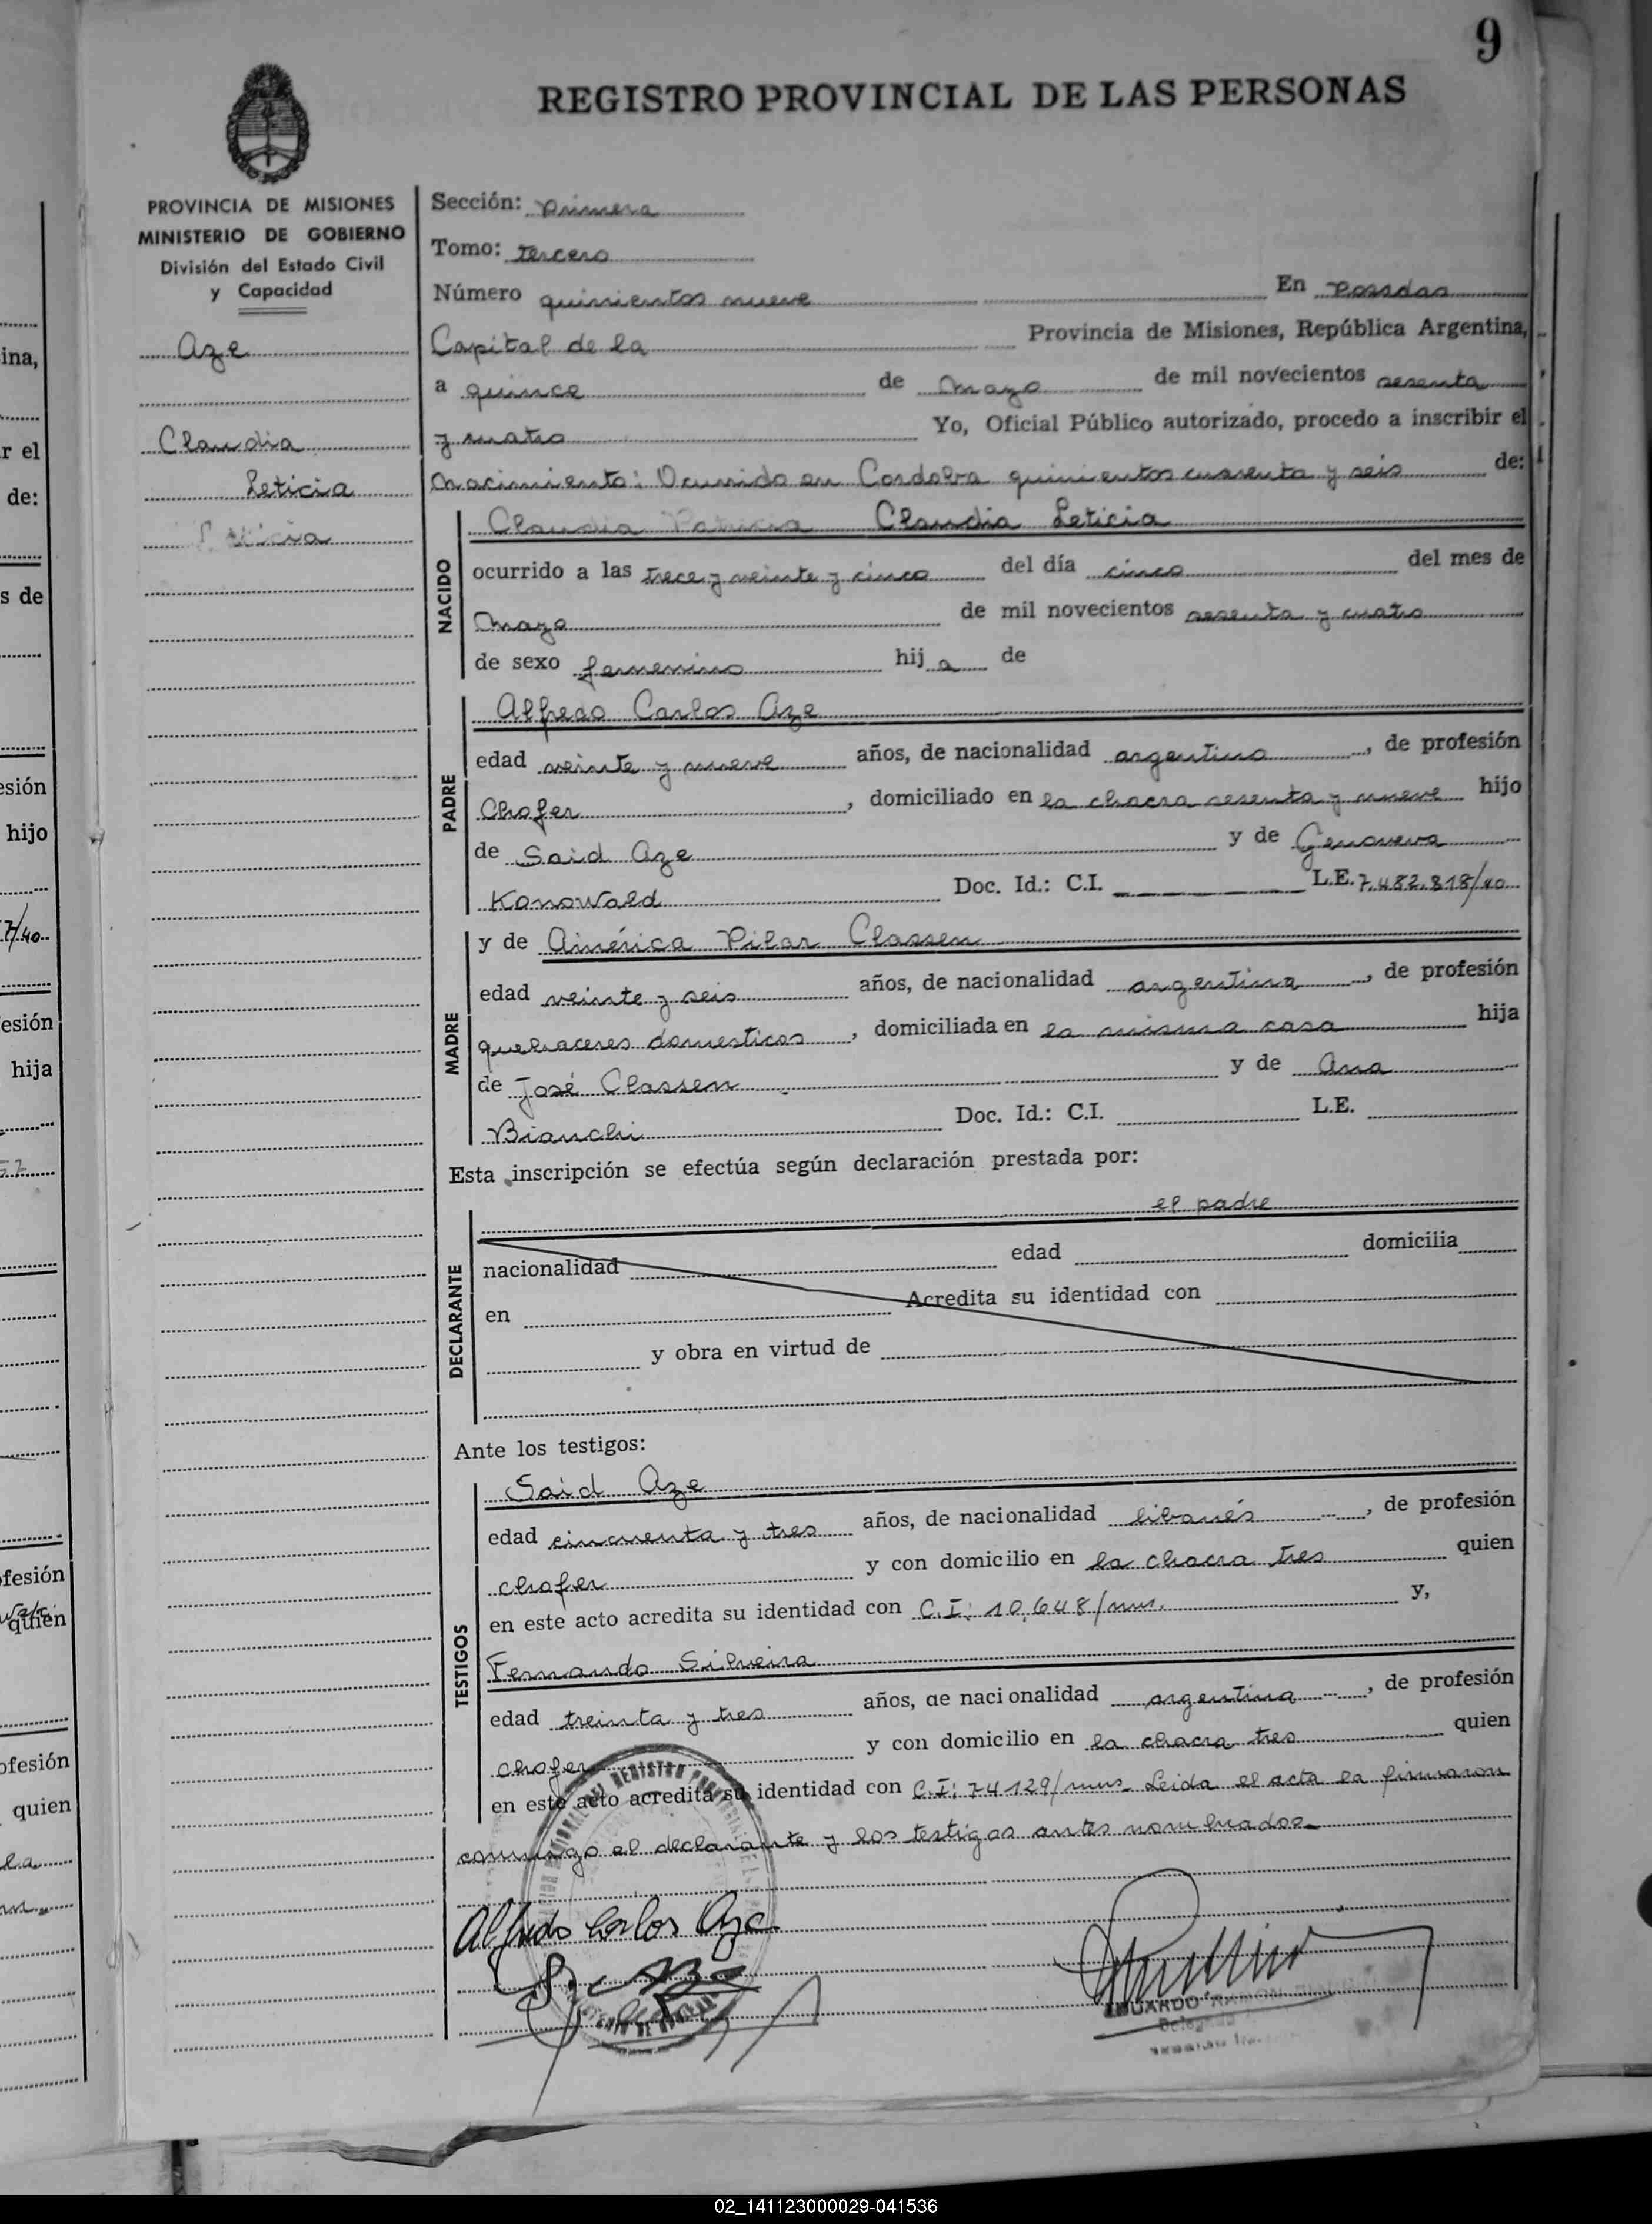 9
REGISTRO PROVINCIAL DE LAS PERSONAS
PROVINCIA DE MISIONES
MINISTERIO DE GOBIERNO
División del Estado Civil
y Capacidad
Aze
Claudia
Leticia
Sección: primera
Tomo: tercero
Número quinientos nueve En Posadas
Capital de la Provincia de Misiones, República Argentina,
a quince de mayo de mil novecientos sesenta
y cuatro Yo, Oficial Público autorizado, procedo a inscribir el
nacimiento: Ocurrido en Cordoba quinientos cuarenta y seis de:
NACIDO
Claudia Patricia Claudia Leticia
ocurrido a las trece y veinte y cinco del día cinco del mes de
Mayo de mil novecientos sesenta y cuatro
de sexo femenino hij a de
PADRE
Alfredo Carlos Aze
edad veinte y nueve años, de nacionalidad argentino, de profesión
Chofer, domiciliado en la chacra sesenta y nueve hijo
de Said Aze y de Genoveva
Konowald Doc. Id.: C.I. L.E. 7.482.818/40
MADRE
y de América Pilar Classen
edad veinte y seis años, de nacionalidad argentina, de profesión
quehaceres domesticos, domiciliada en la misma casa hija
de José Classen y de Ana
Bianchi Doc. Id.: C.I. L.E.
Esta inscripción se efectúa según declaración prestada por:
el padre
DECLARANTE
nacionalidad edad domicilia
en Acredita su identidad con
y obra en virtud de
Ante los testigos:
TESTIGOS
Said Aze
edad cincuenta y tres años, de nacionalidad libanés, de profesión
chofer y con domicilio en la chacra tres quien
en este acto acredita su identidad con C.I: 10.648/mns. y,
Fernando Silveira
edad treinta y tres años, de nacionalidad argentina, de profesión
chofer y con domicilio en la chacra tres quien
en este acto acredita su identidad con C.I: 74129/mns. Leida el acta la firmaron
conmigo el declarante y los testigos antes nombrados.
Alfredo Carlos Aze
EDUARDO RAMON
02_141123000029-041536